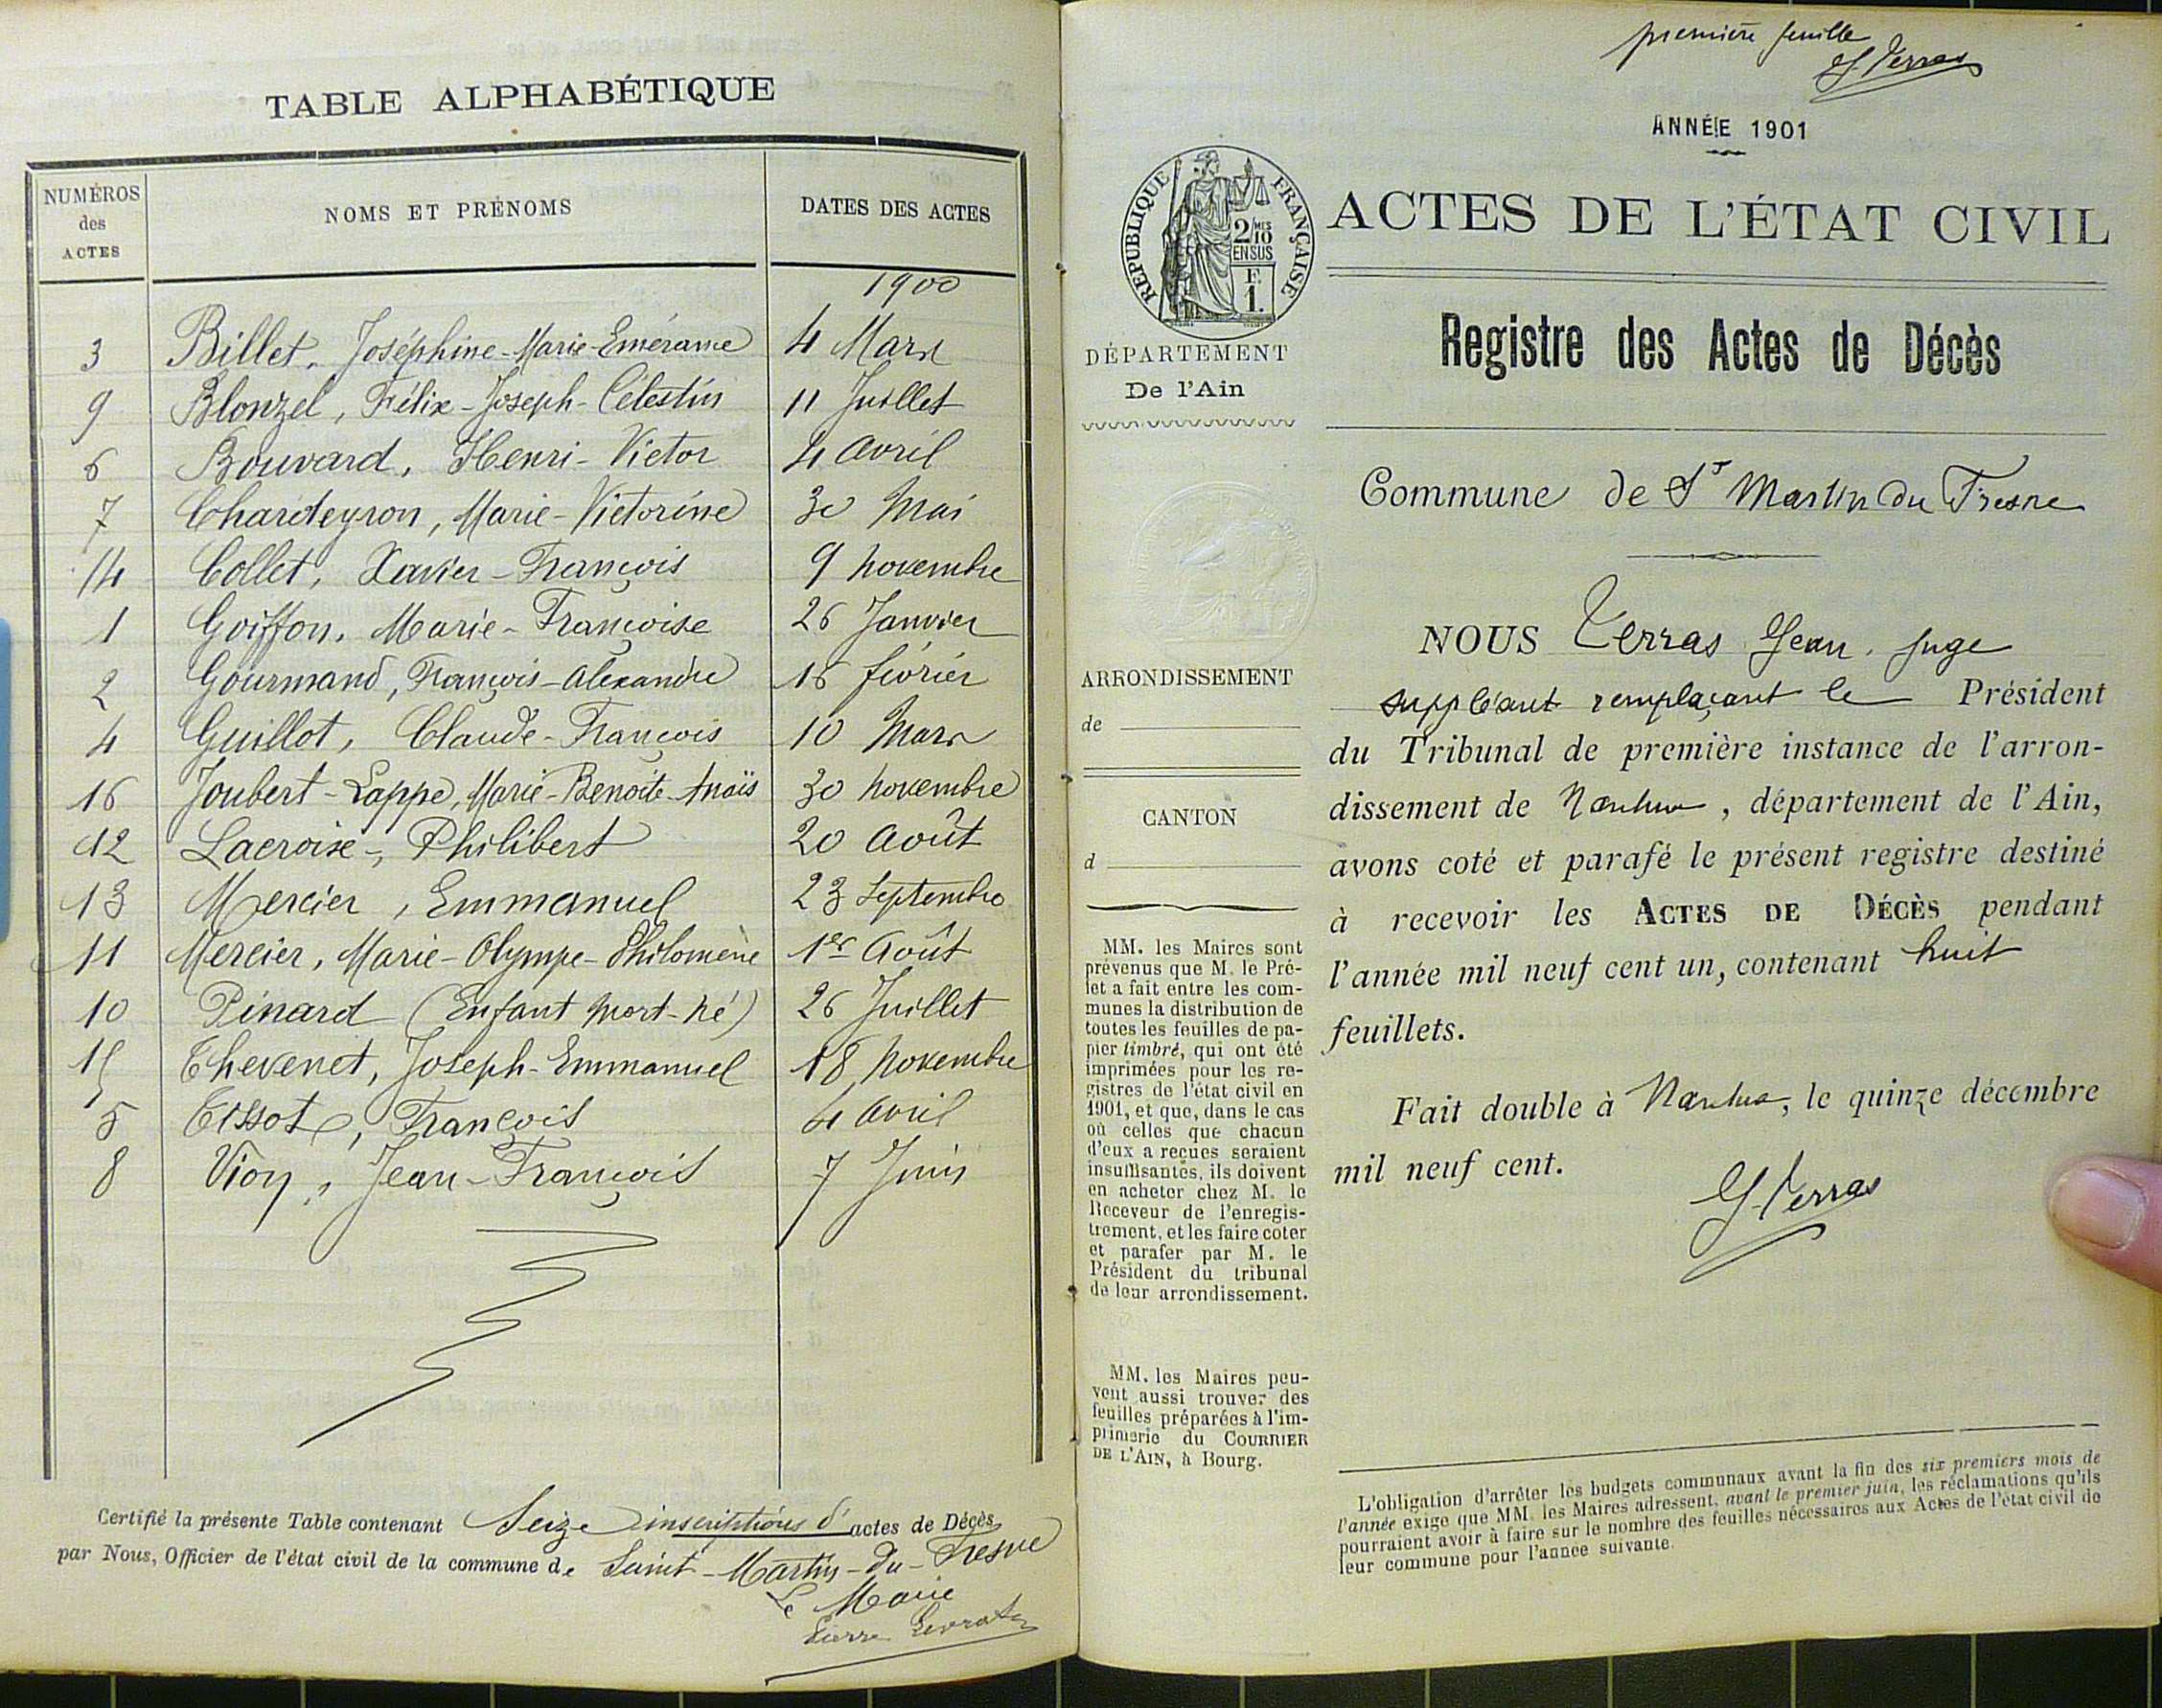 TABLE ALPHABÉTIQUE
NUMÉROS des ACTES
NOMS ET PRÉNOMS
DATES DES ACTES
1900
3 Billet, Joséphine-Marie-Emérame 4 Mars
9 Blonzel, Félix-Joseph-Célestin 11 Juillet
6 Bouvard, Henri-Victor 4 avril
7 Chardeyron, Marie-Victorine 30 Mai
14 Collet, Xavier-François 9 novembre
1 Goiffon, Marie-Françoise 26 Janvier
2 Gourmand, François-alexandre 16 février
4 Guillot, Claude-François 10 Mars
16 Joubert-Lappe, Marie-Benoite-Anaïs 30 novembre
12 Lacroix-, Philibert 20 Août
13 Mercier, Emmanuel 23 Septembre
11 Mercier, Marie-Olympe-Philomène 1er Août
10 Pinard (Enfant mort-né) 26 Juillet
15 Thevenet, Joseph-Emmanuel 18 novembre
5 Tissot, François 4 avril
8 Vion, Jean-François 7 Juin
Certifié la présente Table contenant Seize inscriptions d' actes de Décès
par Nous, Officier de l'état civil de la commune de Saint-Martin-du-Fresne
Le Maire
Pierre
première feuille
J. Terras
ANNÉE 1901
RÉPUBLIQUE FRANÇAISE
2/10 MES
EN SUS
F.
1.
ACTES DE L'ÉTAT CIVIL
Registre des Actes de Décès
DÉPARTEMENT
De l'Ain
Commune de St Martin du Fresne
ARRONDISSEMENT
de
CANTON
d
MM. les Maires sont
prévenus que M. le Pré-
fet a fait entre les com-
munes la distribution de
toutes les feuilles de pa-
pier timbré, qui ont été
imprimées pour les re-
gistres de l'état civil en
1901, et que, dans le cas
où celles que chacun
d'eux a reçues seraient
insuffisantes, ils doivent
en acheter chez M. le
Receveur de l'enregis-
trement, et les faire coter
et parafer par M. le
Président du tribunal
de leur arrondissement.
MM. les Maires peu-
vent aussi trouver des
feuilles préparées à l'im-
primerie du COURRIER
DE L'AIN, à Bourg.
NOUS Terras Jean, juge
suppléant remplaçant le Président
du Tribunal de première instance de l'arron-
dissement de Nantua, département de l'Ain,
avons coté et parafé le présent registre destiné
à recevoir les ACTES DE DÉCÈS pendant
l'année mil neuf cent un, contenant huit
feuillets.
Fait double à Nantua, le quinze décembre
mil neuf cent.
J. Terras
L'obligation d'arrêter les budgets communaux avant la fin des six premiers mois de
l'année exige que MM. les Maires adressent, avant le premier juin, les réclamations qu'ils
pourraient avoir à faire sur le nombre des feuilles nécessaires aux Actes de l'état civil de
leur commune pour l'année suivante.